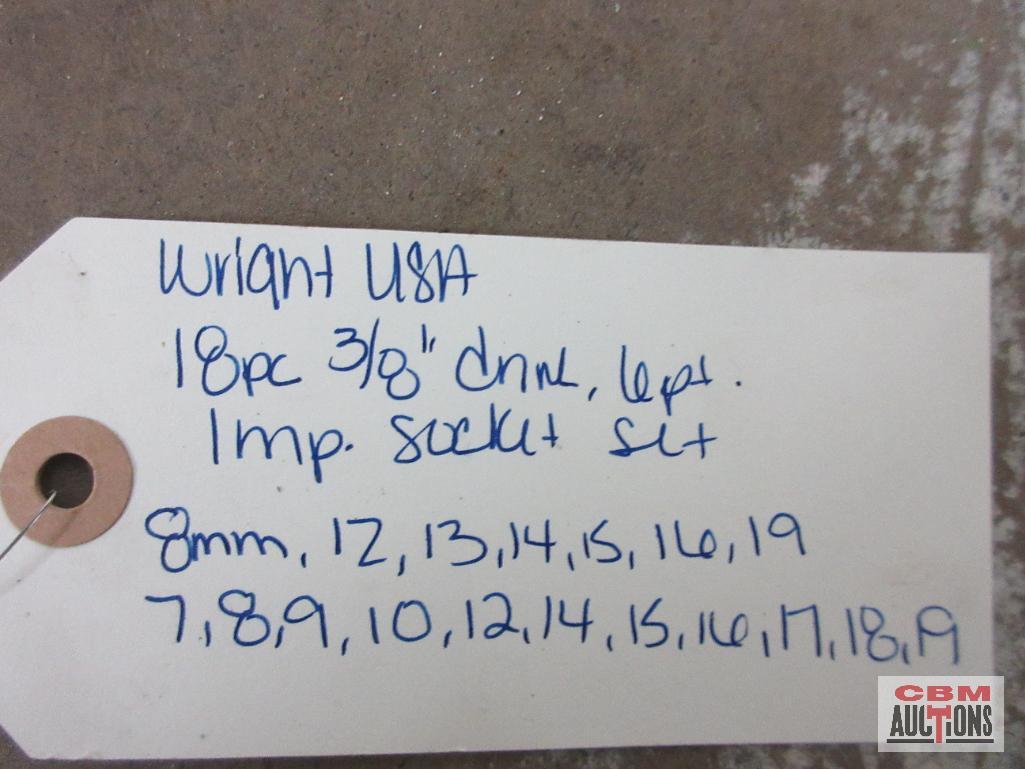 Wright USA
18pc 3/8" drive, 6pt.
Imp. socket set
8mm, 12, 13, 14, 15, 16, 19
7, 8, 9, 10, 12, 14, 15, 16, 17, 18, 19
CBM
AUCTIONS